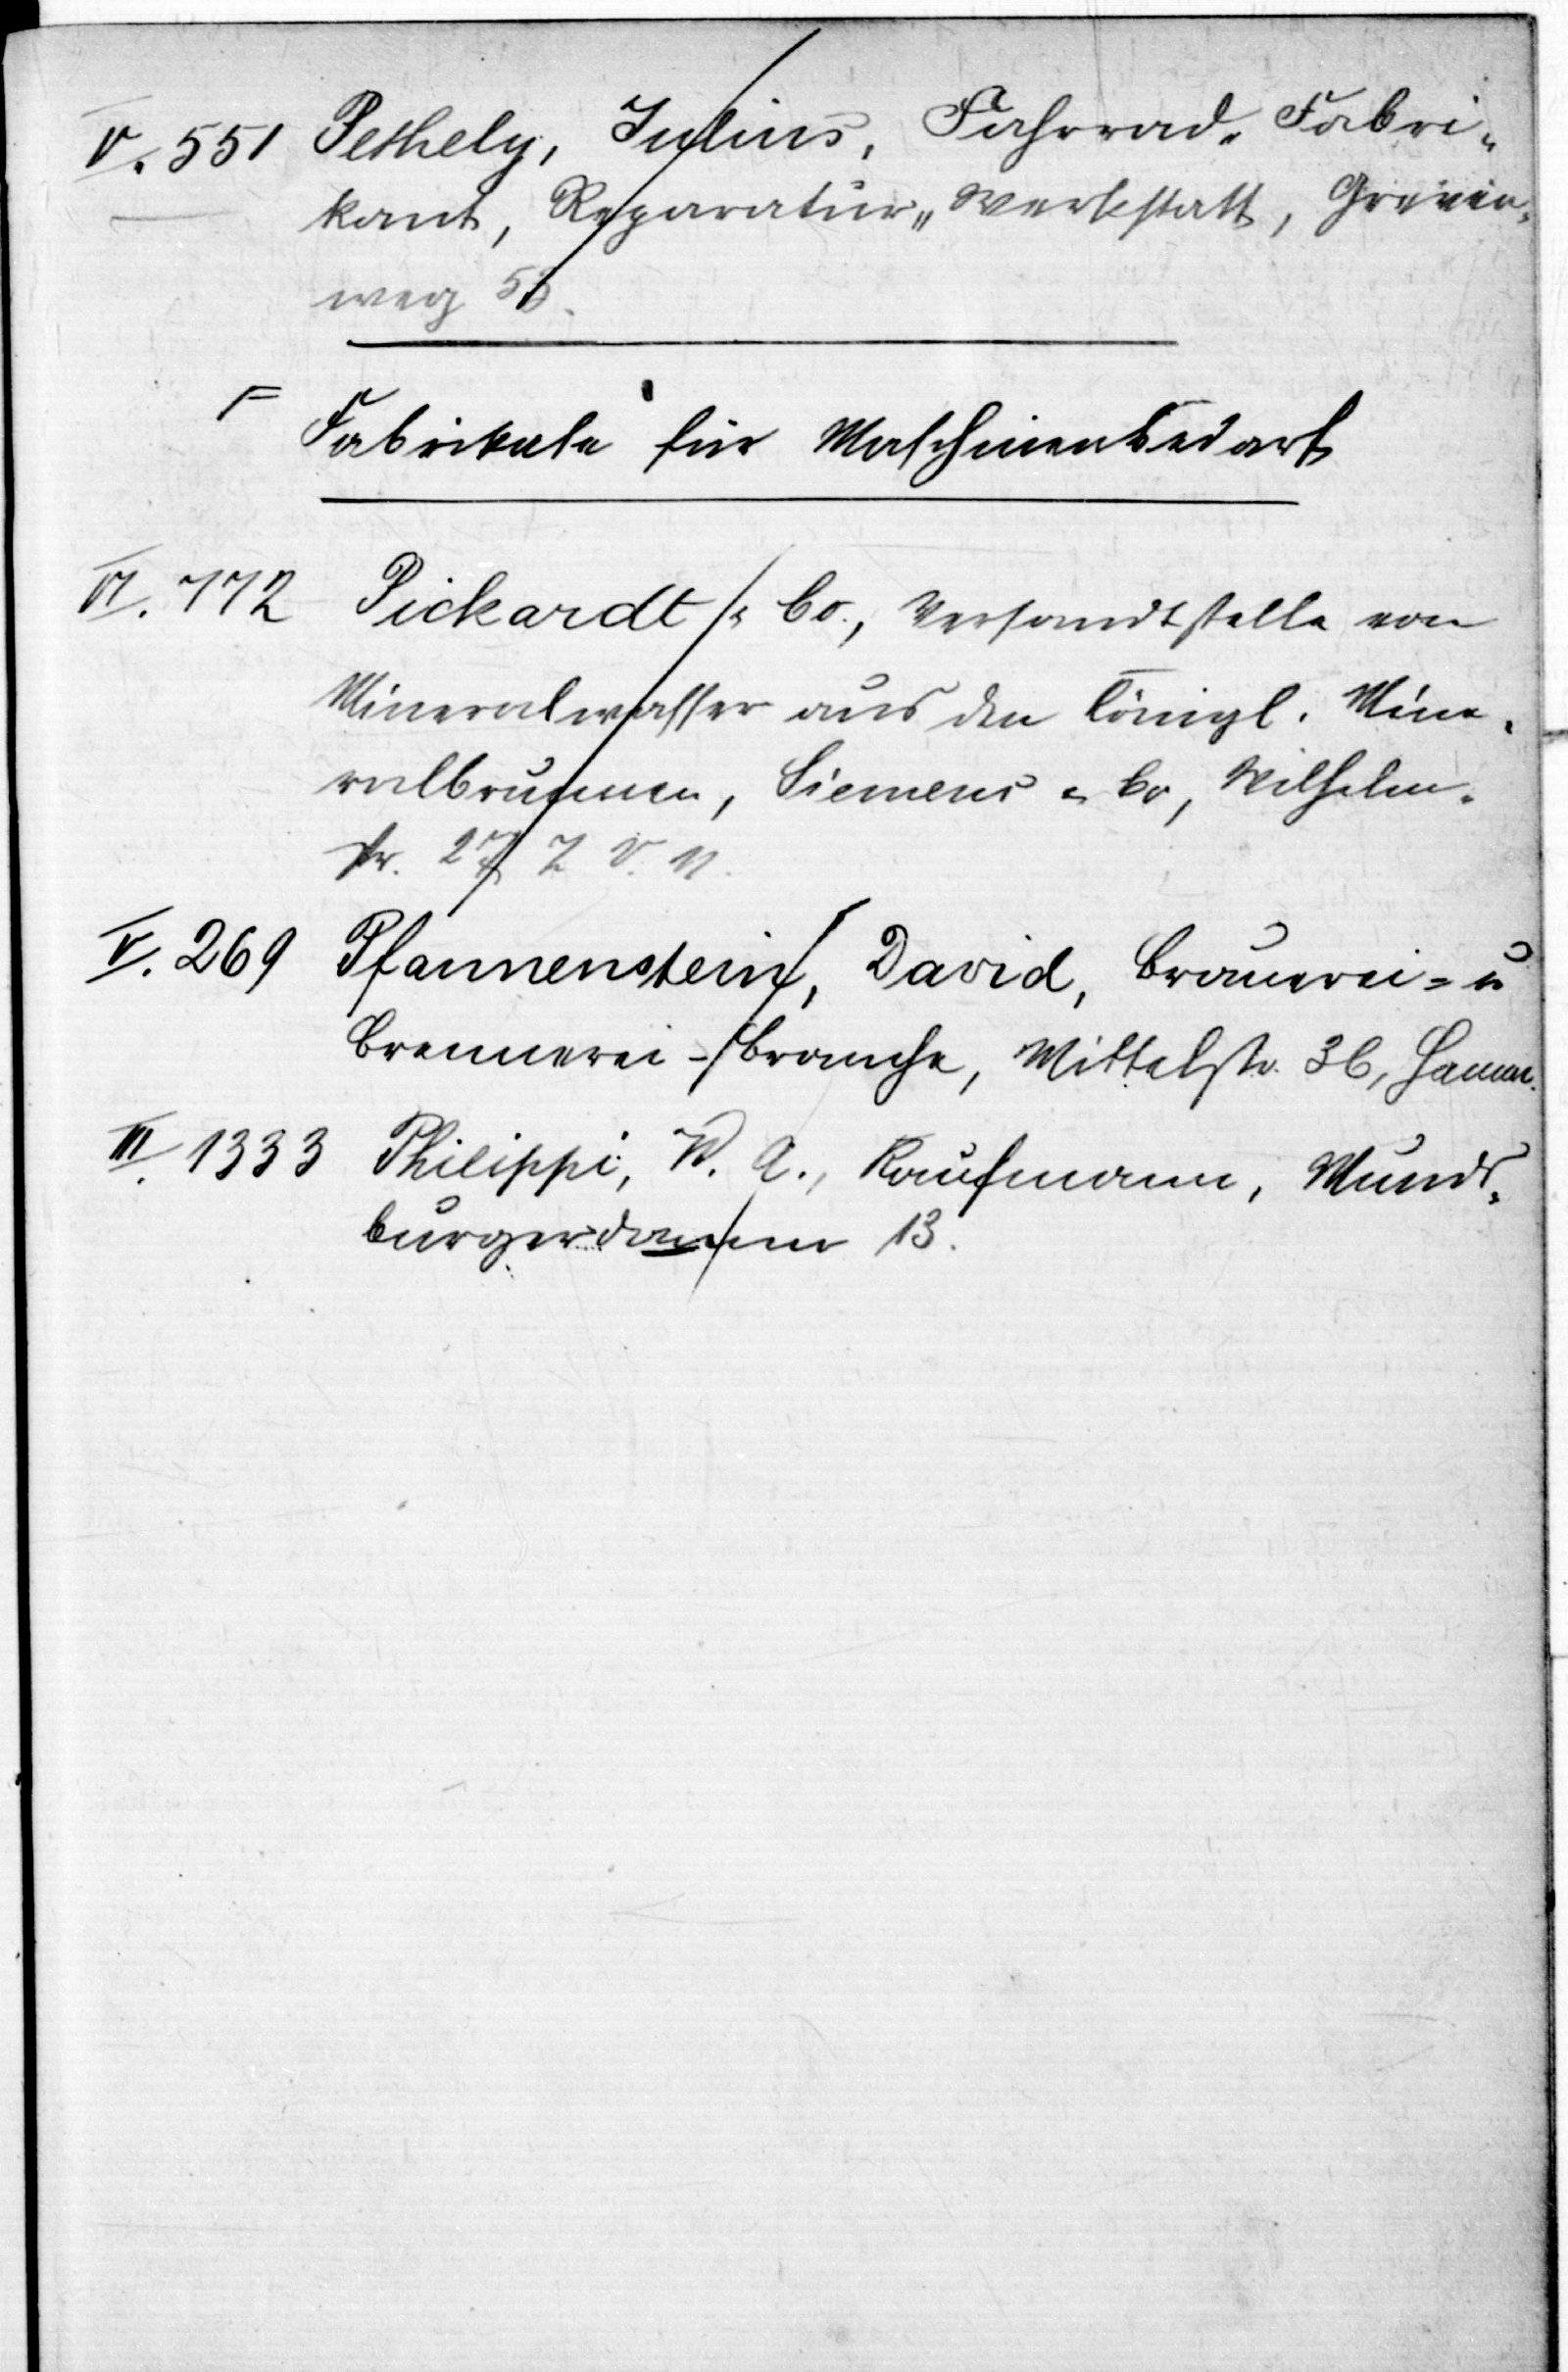 V. 551 Pethely, Julius, Fahrrad-Fabri-
kant, Reparatur-Werkstatt, Greven-
weg 53.
F Fabrikate für Maschinenbedarf
VI. 772 Pickardt & Co., Versandtstelle von
Mineralwasser aus den Königl. Mine-
ralbrunnen, Siemens & Co, Wilhelm-
str. 27 Z V. N.
V. 269 Pfannenstein, David, Brauerei- u
Brennerei-Branche, Mittelstr. 36, Hamm.
III. 1333 Philippi, W. A., Kaufmann, Munds-
burgerdamm 13.